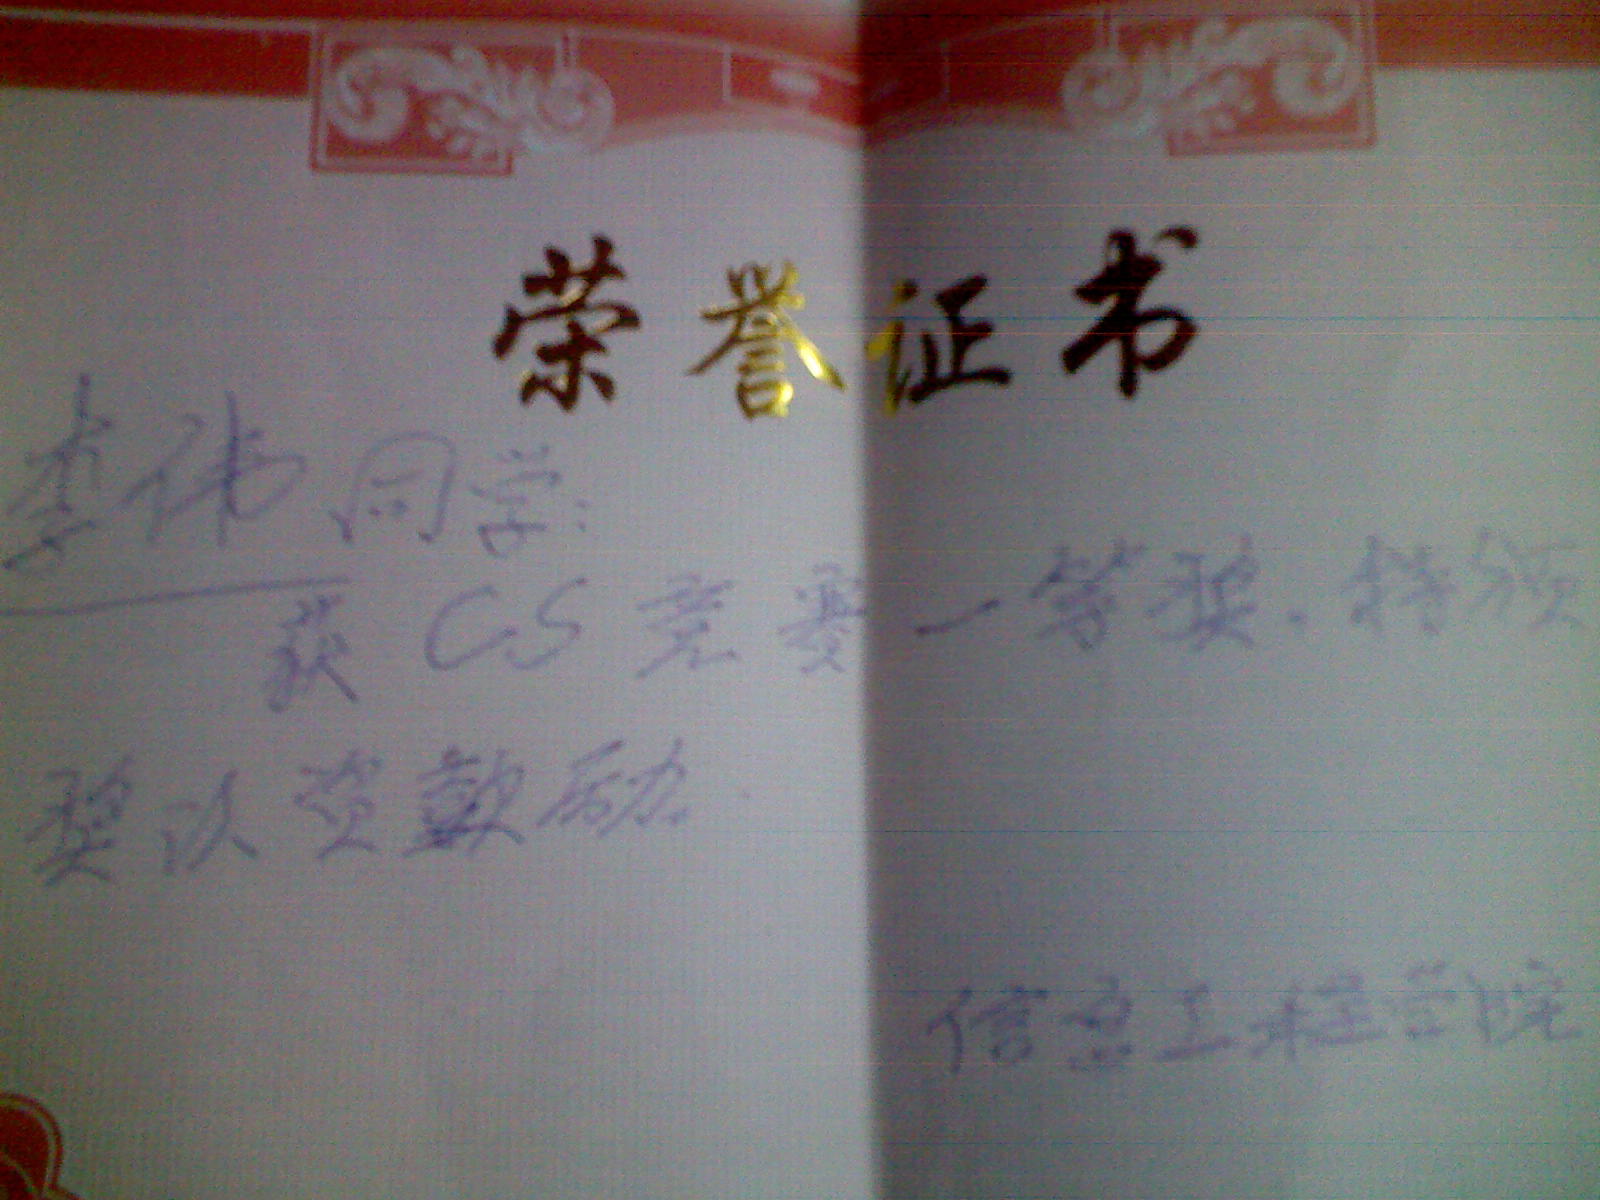 荣誉证书
李伟同学:
获CS竞赛一等奖.特颁
奖以资鼓励.
信息工程学院